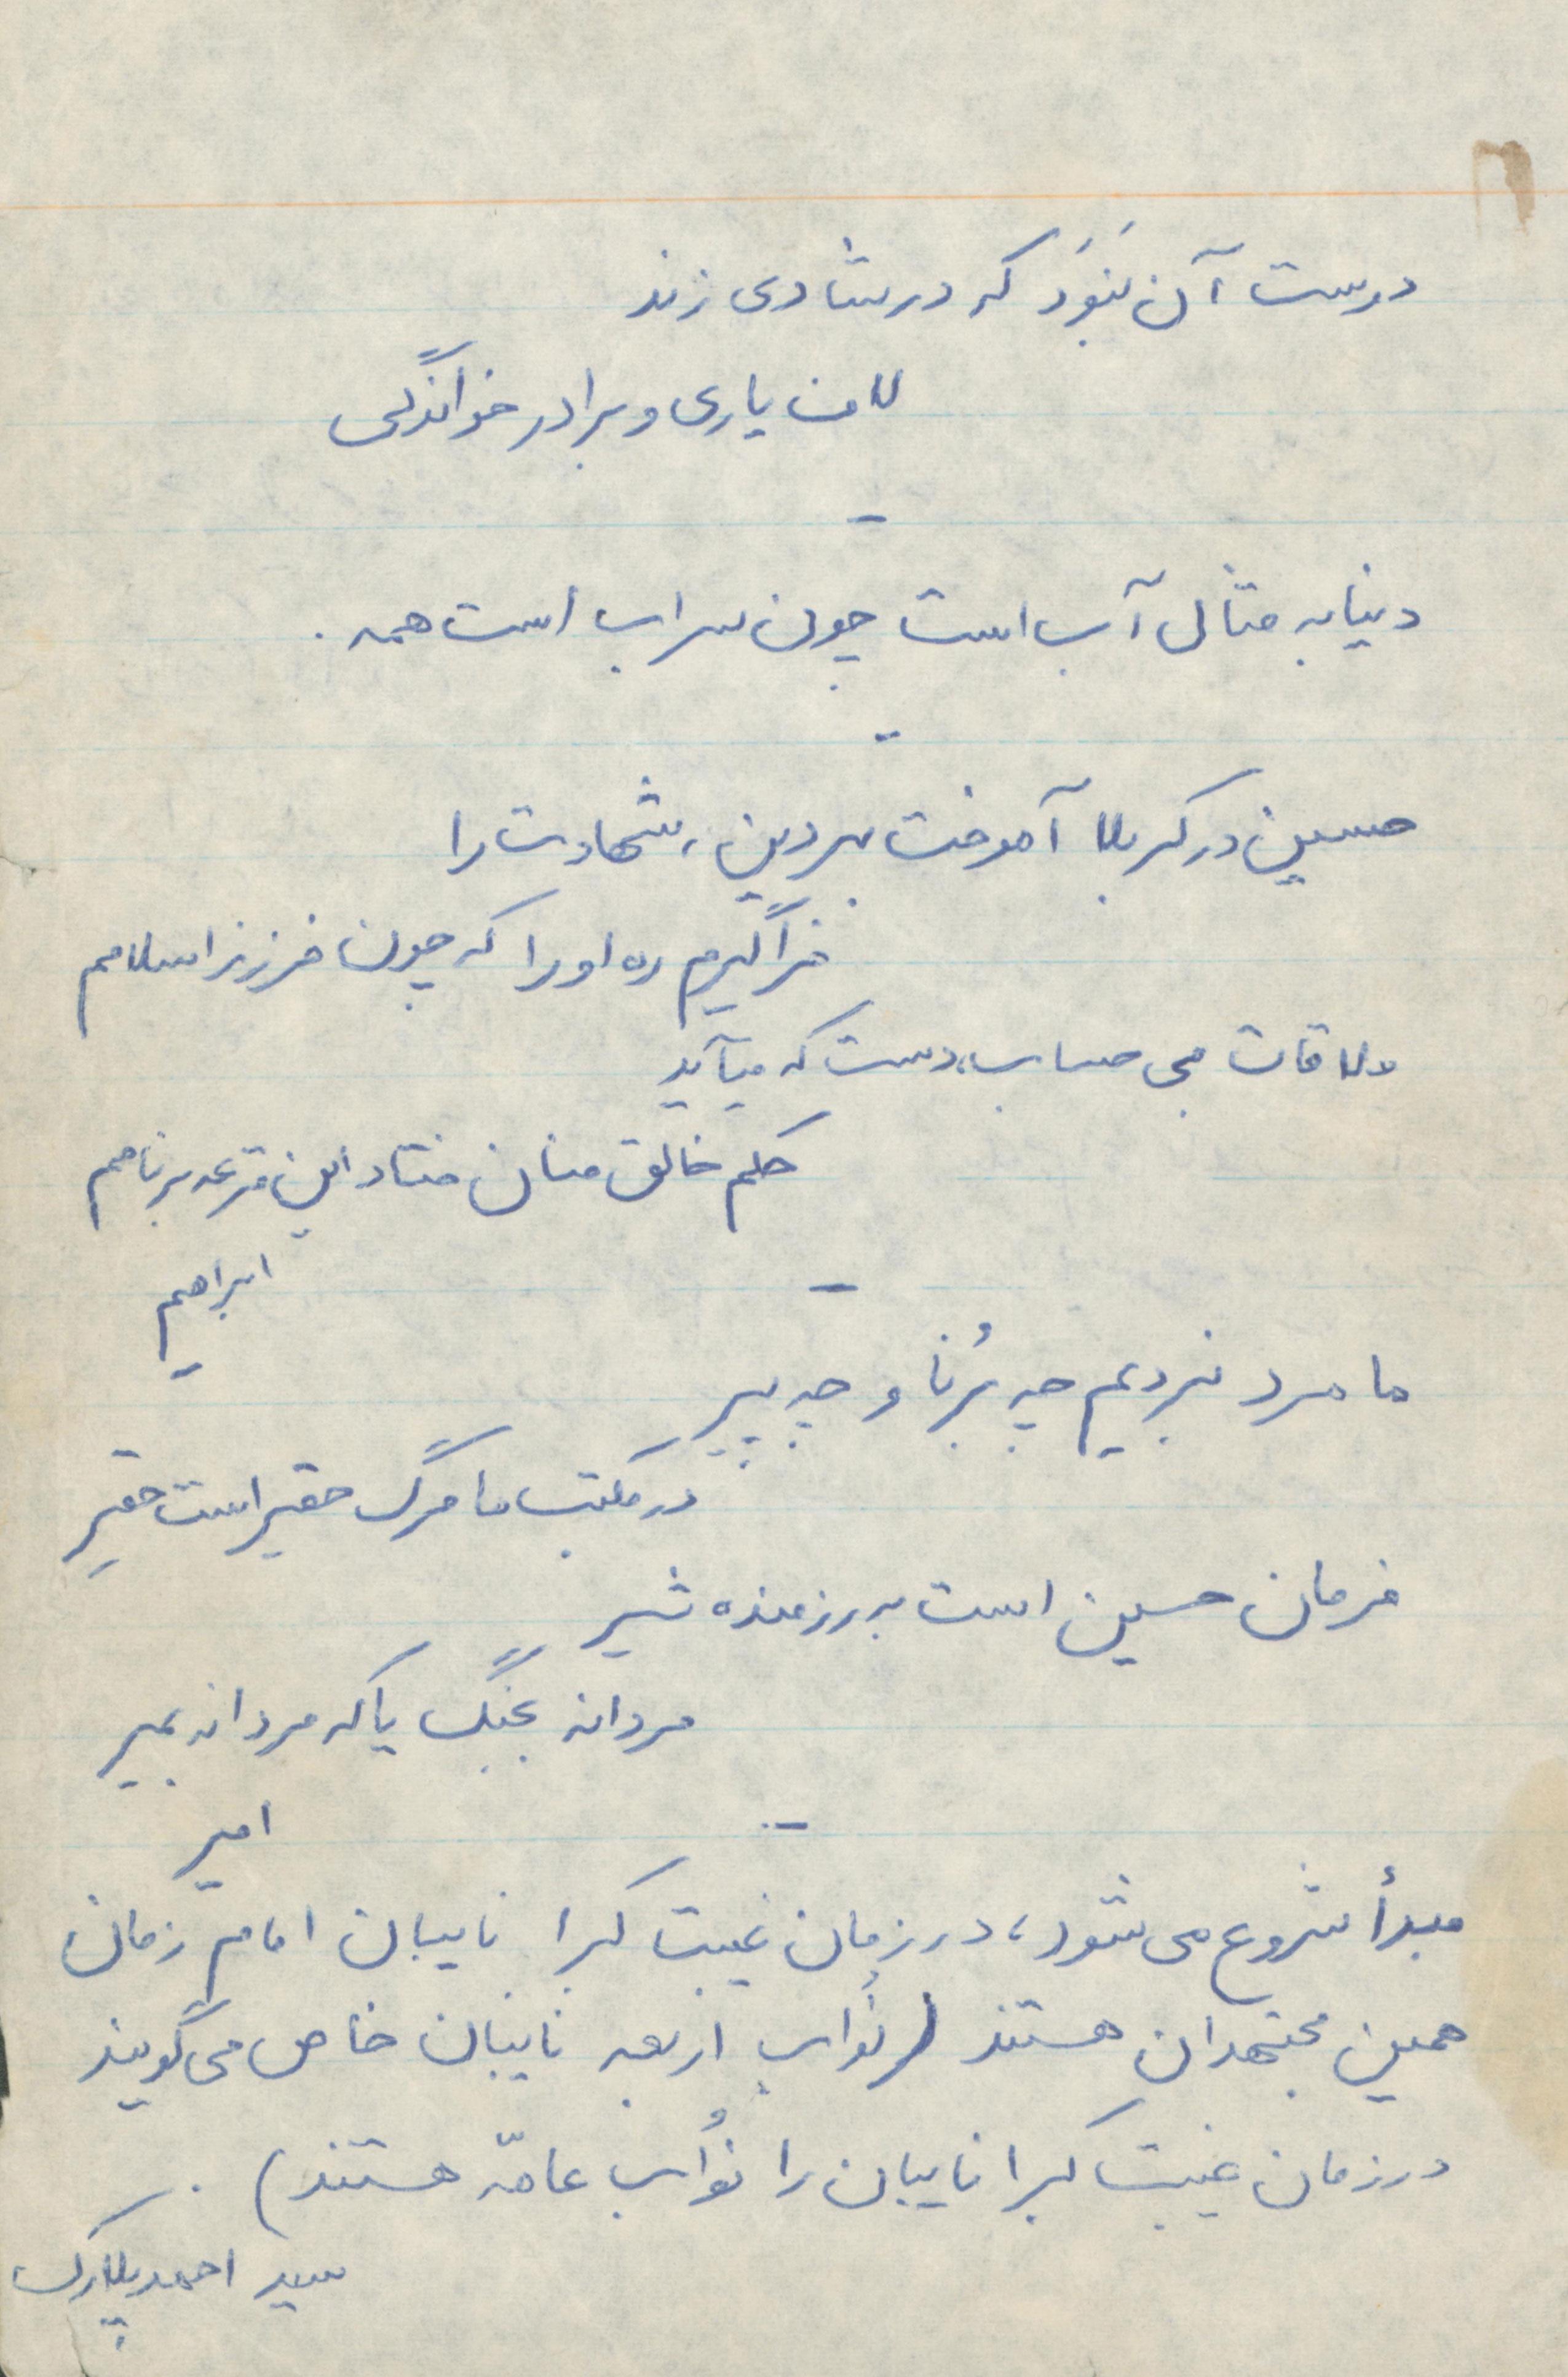 درست آن نَبوَد که در شادی زند
لاف یاری و برادر خواندگی
-
دنیا به مثال آب است چون سراب است همه .
-
حسین در کربلا آموخت بهر دین، شهادت را
فراگیرم ره او را که چون فرزند اسلامم
ملاقات بی حساب، دست که میآید
حکم خالق منان فتاد این قرعه بر نامم
ابراهیم
-
ما مرد نبردیم چه بُرنا و چه پیر
در مکتب ما مرگ حقیر است حقیر
فرمان حسین است به رزمنده شیر
مردانه بجنگ یا که مردانه بمیر
امیر
-
مبدأ شروع می شود، در زمان غیبت کبرا نایبان امام زمان
همین مجتهدان هستند (نُواب اربعه نایبان خاص می گویند
در زمان غیبت کبرا نایبان را نُواب عامّه هستند) .
سید احمد پلارک